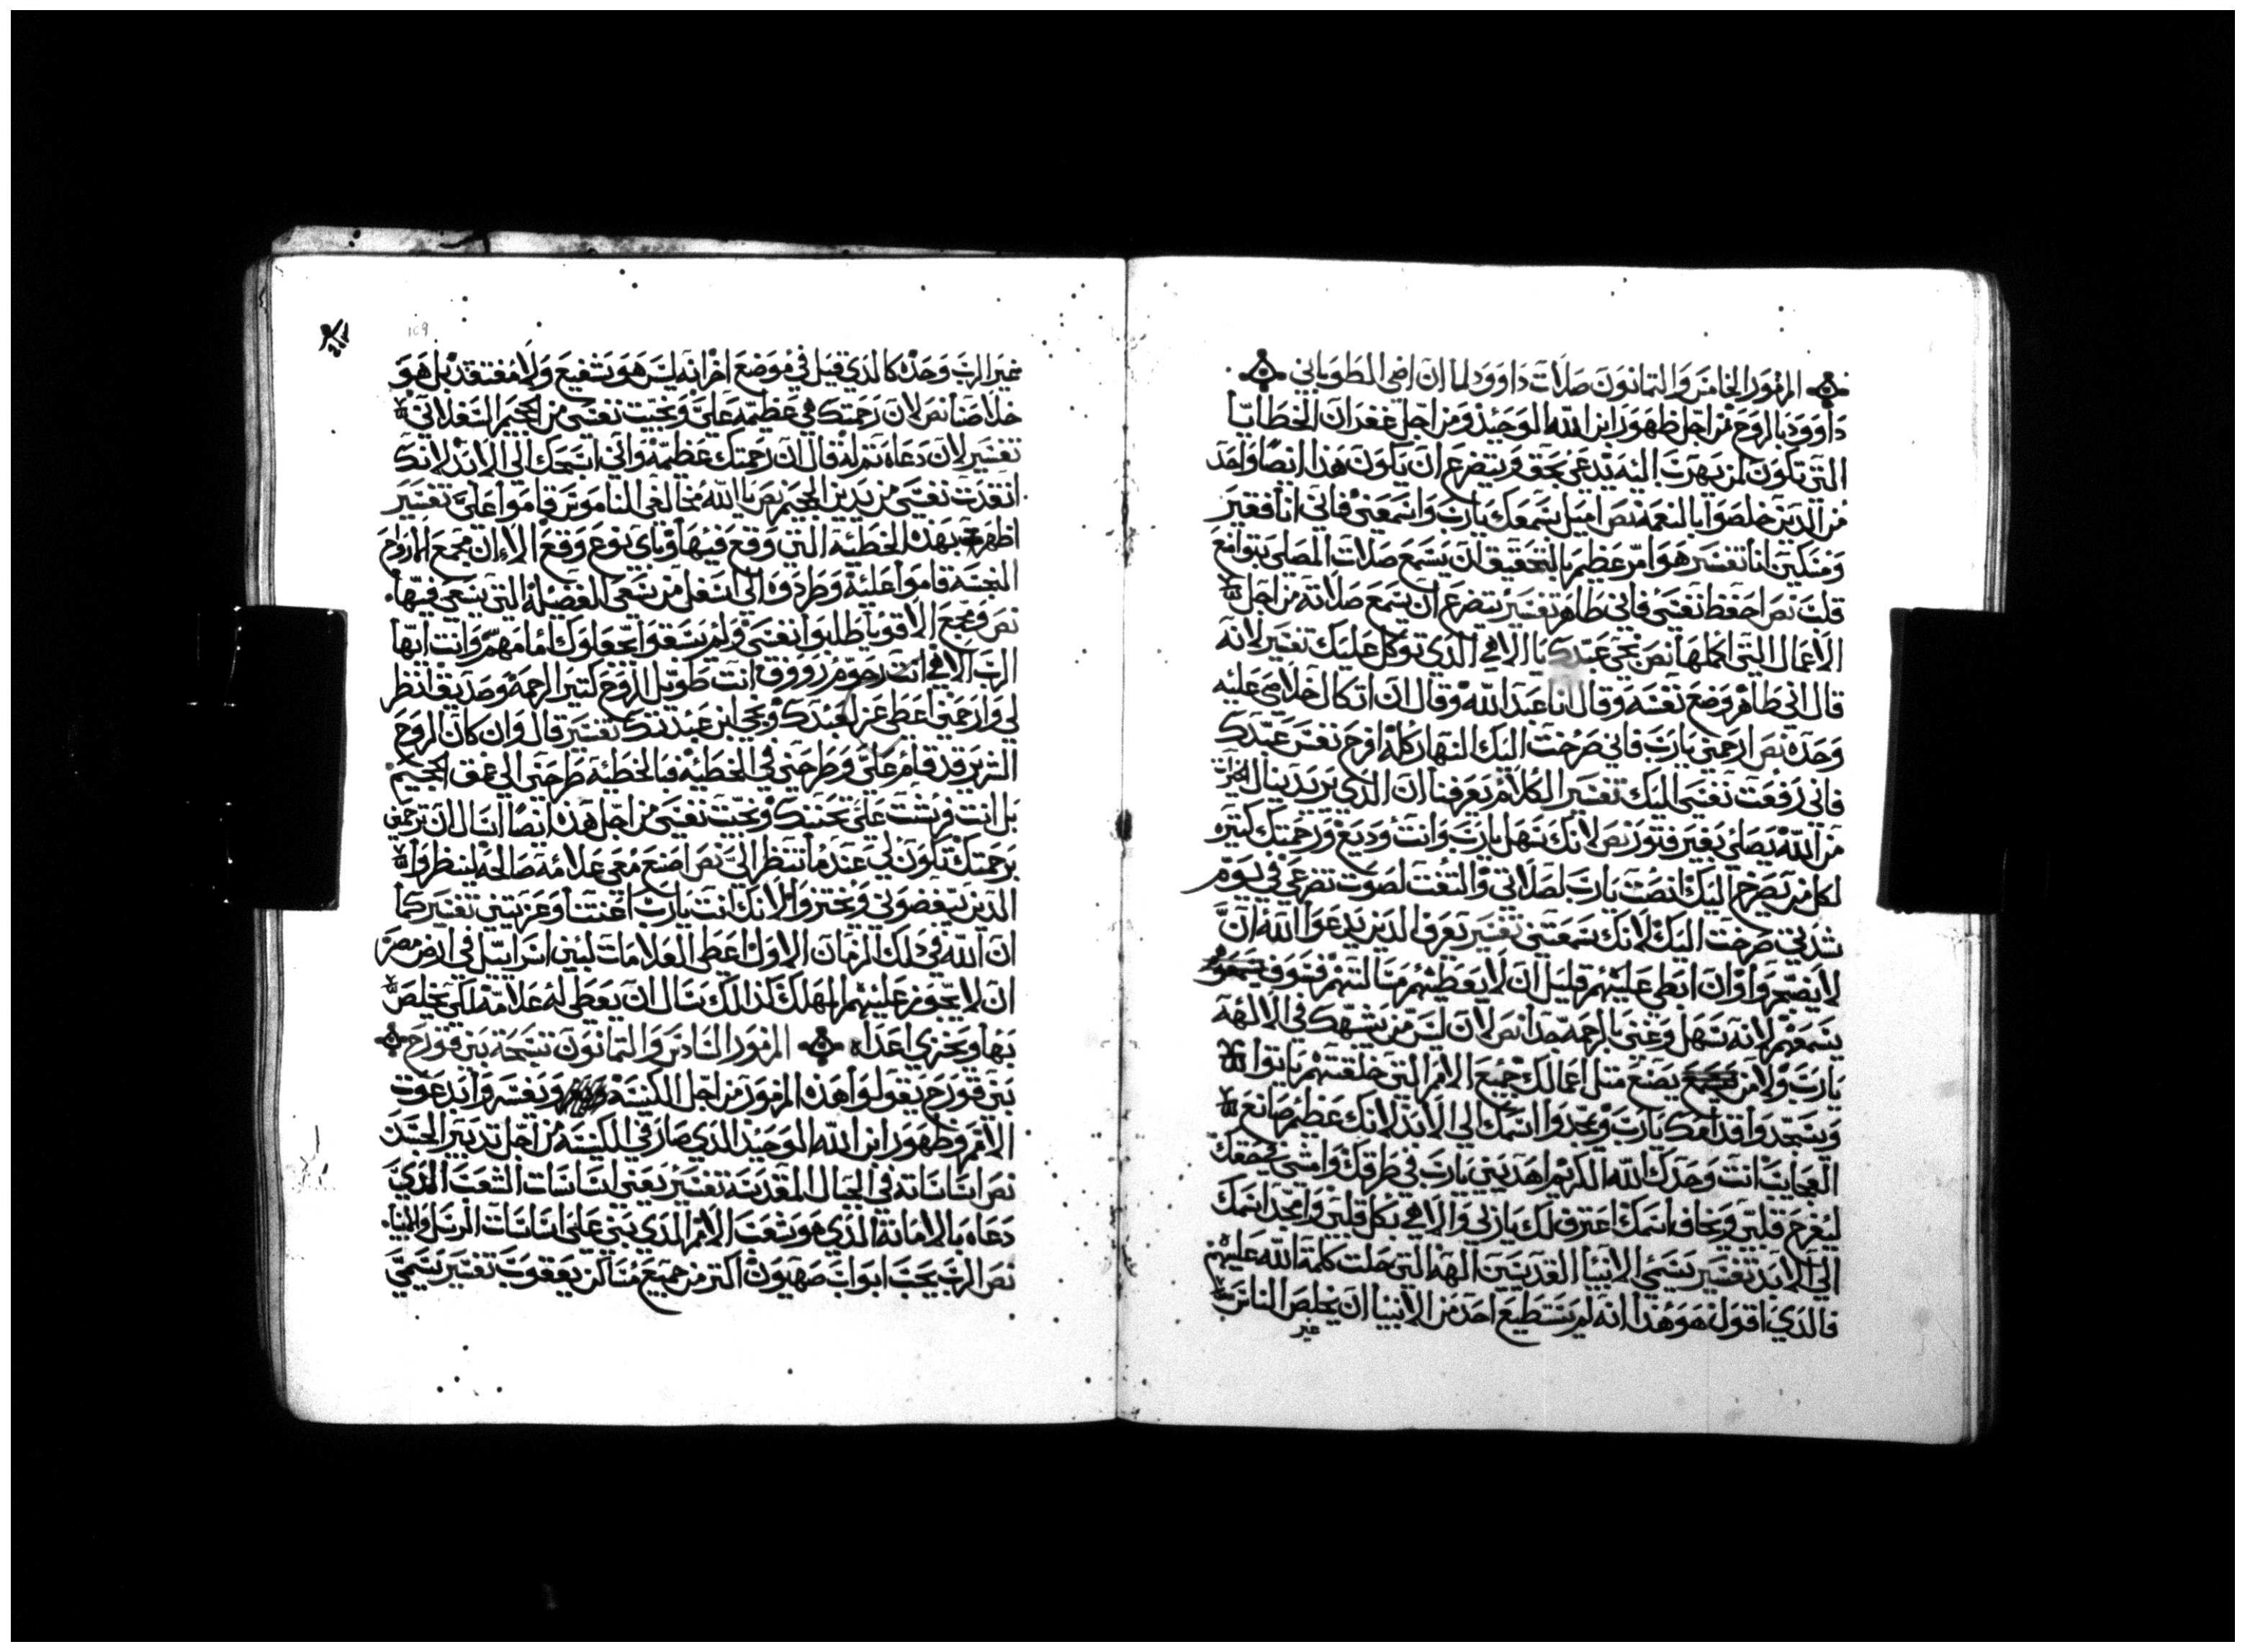 المزمور الخامس والتمانون صلات داوود لما ان اضي الطوباني
داوود بالروح من اجل ظهور ابن الله الوحيد ومن اجل غفران الخطايا
التي تكون لمن يهرب اليه يدعي بحق ويتضرع ان يكون هذا ايضا واحد
من الدين خلصوا بالنعمه نص اميل سمعك يارب واسمعني فاني انا فقير
ومسكين انا تفسير هو امر عظيم بالتحقيق ان يسمع صلات المصلي بتواضع
قلب نص احفظ نفسي فاني طاهر تفسير يتضرع ان يسمع صلاته من اجل
الاعمال التي اكملها نص نجي عبدك يا الاهي الدي توكل عليك تفسير لانه
قال اني طاهر وضع نفسه وقال انا عبد الله وقال ان اتكال خلاصي عليه
وحده نص ارحمني يارب فاني صرخت اليك النهار كله افرح نفس عبدك
فاني رفعت نفسي اليك تفسير الكلام يعرفنا ان الدي يريد ينال الخيرات
من الله يصلي بغير فتور نص لانك سهل يارب وانت وديع ورحمتك كتيره
لكل من يصرخ اليك انصت يارب لصلاتي والتفت لصوت تضرعي في يوم
شدتي صرخت اليك لانك سمعتني تفسير يعرف الدين يدعوا الله ان
لا يضجروا وان ابطي عليهم قليل ان لا يعطيهم مسالتهم فسوف
يسمعهم لانه سهل وغني بالرحمه جدا نص لان ليس من يشبهك في الالهه
يارب ولا من يصنع متل اعمالك جميع الامم التي خلقتهم ياتوا
ويسجدوا قدامك يارب ويمجدوا اسمك الي الابد لانك عظيم صانع
العجايب انت وحدك الله الكريم اهديني يارب في طرقك وامشي بحقك
ليفرح قلبي ويخاف اسمك اعترف لك ياربي والاهي بكل قلبي وامجد اسمك
الي الابد تفسير يسمي الانبيا القديسين الهه التي حلت كلمة الله عليهم
فالدي اقول هو هدا انه لم يستطيع احد من الانبيا ان يخلص الناس
غير
109
غير الرب وحده كالدي قيل في موضع اخر انه ليس هو شفيع ولا مفتقد بل هو
خلاصنا نص لان رحمتك في عظيمه علي ونجيت نفسي من الجحيم السفلاني
تفسير لان دعاه تم له قال ان رحمتك عظيمه واني اسبحك الي الابد لانك
انقدت نفسي من يدين الجحيم نص يا الله مخالفي الناموس قاموا علي تفسير
اظهرت بهده الخطيه التي وقع فيها وباي نوع وقع الان مجمع الارواح
النجسه قاموا عليه وطردوه الي اسفل من سعي الفضيله التي يسعي فيها
نص ومجمع الاقويا طلبوا نفسي ولم يسبقوا يجعلوك امامهم وانت ايها
الرب الاهي انت رحوم رووف انت طويل الروح كتير الرحمه وصديق انظر
لي وارحمني اعطي عز لعبدك ونجي ابن عبدتك تفسير قال وان كان الروح
الشرير قد قام علي وطرحني في الخطيه فبالخطيه طرحني الي عمق الجحيم
بل انت فرشت علي محبتك ونجيت نفسي من اجل هده ايضا اسال ان ترحمني
برحمتك تكون لي عندما تنظر الي نص اصنع معي علامة صالحه لينظروا
الدين يبغضوني ويخزوا لانك انت يارب اعنتنا وعزيتني تفسير كما
ان الله في دلك الزمان الاول اعطي العلامات لبني اسراييل في ارض مصر
ان لا يجوز عليهم المهلك كدلك نسال ان يعطي له علامة لكي يخلص
بها ويخزي اعداه المزمور السادس والتمانون تسبحة بني قورح
بني قورح يقولوا هده المزمور من اجل الكنيسه ونفسه وايد دعوت
الامم وظهور ابن الله الوحيد الدي صار في الكنيسه من اجل تدبير الجسد
نص اساساته في الجبال المقدسه تفسير يعني اساسات الشعب الدي
دعاه بالامانه الدي هو شعب الامم الدي بني علي اساسات الرسل والانبيا
نص الرب يحب ابواب صهيون اكتر من جميع مساكن يعقوب تفسير يسمي